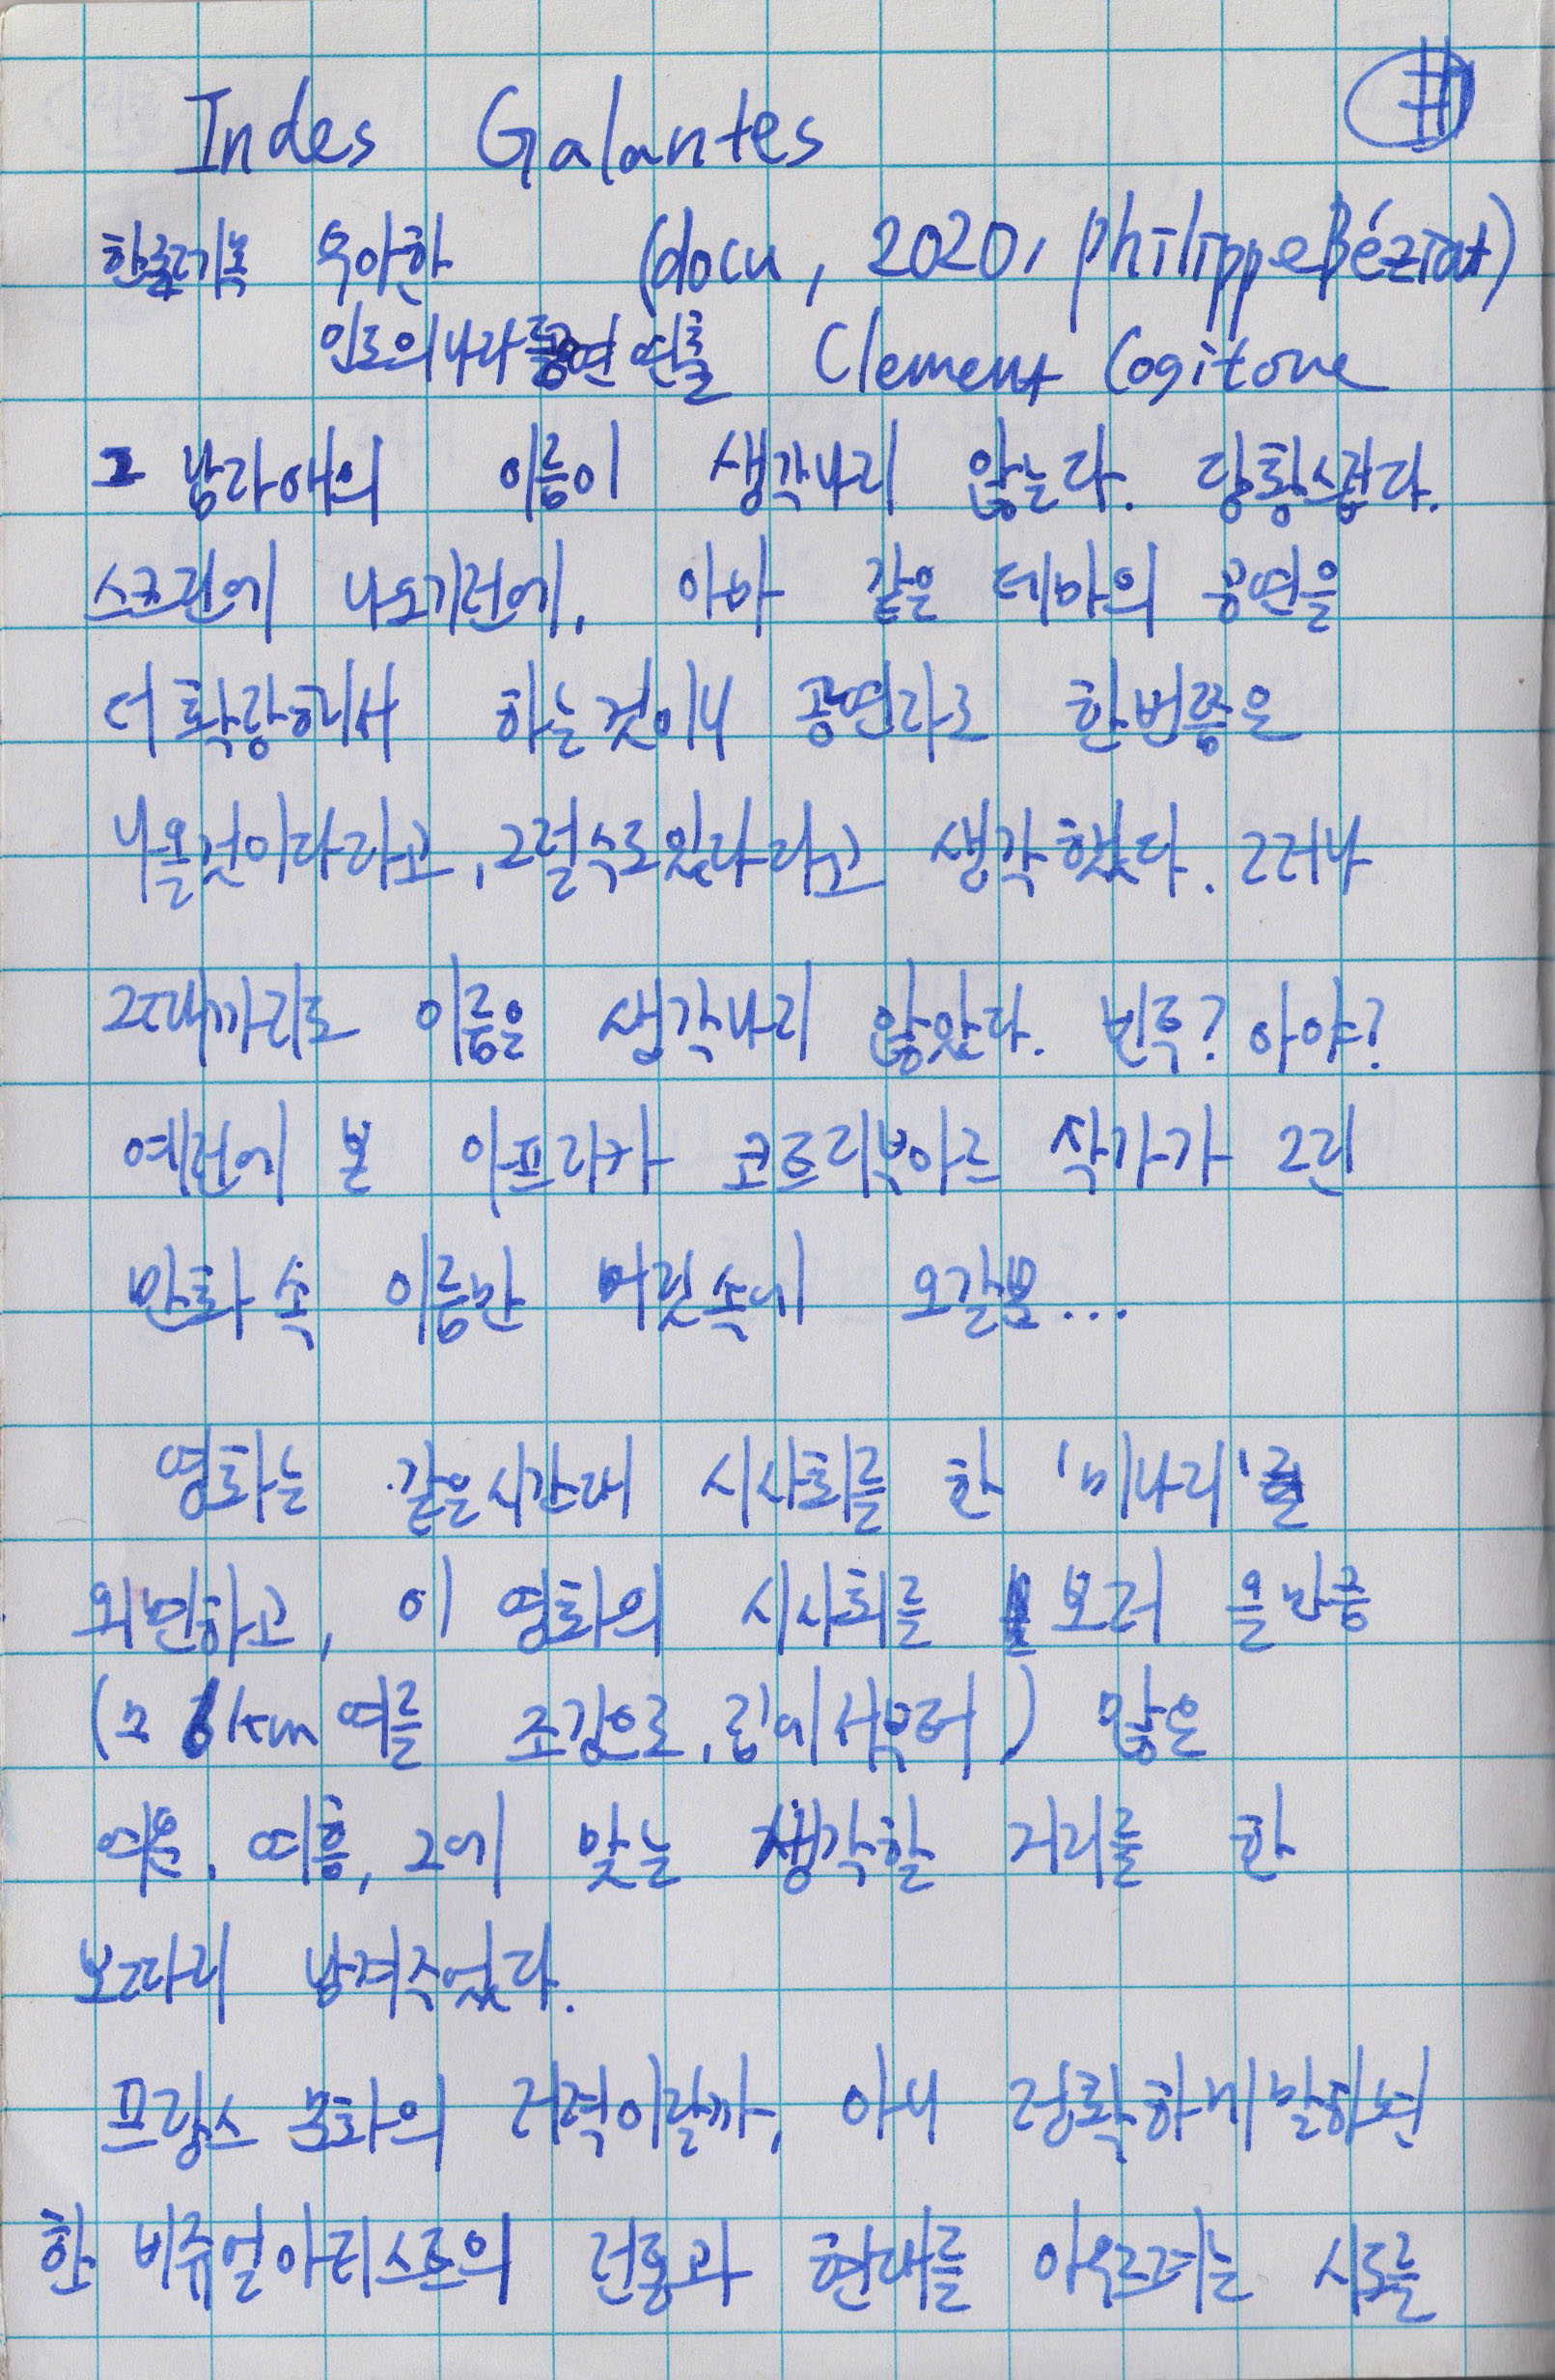 #
Indes Galantes
한글기록 우아한 (docu, 2020, philippe Béziat)
인도의나라들 공연 연출 Clement Cogitore
그 남자애의 이름이 생각나지 않는다. 당황스럽다.
스크린에 나오기전에, 아마 같은 테마의 공연을
더 확장해서 하는것이니 공연자로 한번쯤은
나올것이다라고, 그럴수도있다라고 생각했다. 그러나
그때까지도 이름은 생각나지 않았다. 빈투? 아야?
예전에 본 아프리카 코트디부아르 작가가 그린
만화 속 이름만 머릿속에 오갈뿐...
영화는 같은시간대 시사회를 한 '미나리'를
외면하고, 이 영화의 시사회를 보러 올만큼
(그 6km 여를 조깅으로, 집에서부터) 많은
여운, 여흥, 그에 맞는 생각할 거리를 한
보따리 남겨주었다.
프랑스 문화의 저력이랄까, 아니 정확하게말하면
한 비쥬얼아티스트의 전통과 현대를 아우르려는 시도를